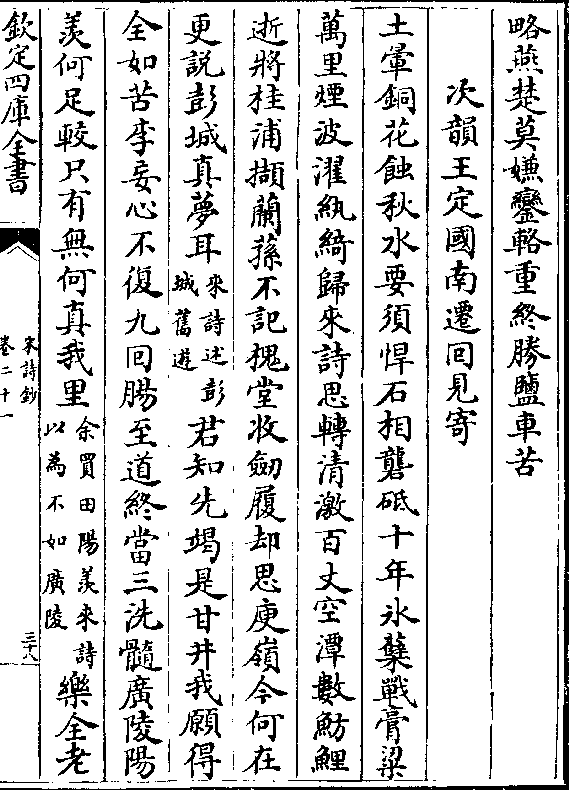 略燕楚莫嫌鑾輅重終勝鹽車苦
次韻王定國南遷回見寄
土暈銅花蝕秋水要須悍石相礱砥十年冰蘗戰膏粱
萬里煙波濯紈綺歸來詩思轉清激百丈空潭數魴鯉
逝將桂浦擷蘭蓀不記槐堂收劒履却思庾嶺今何在
更説彭城真夢耳來詩述彭城舊遊君知先竭是甘井我願得
全如苦李妄心不復九回腸至道終當三洗髓廣陵陽
羨何足較只有無何真我里余買田陽羨來詩以為不如廣陵樂全老
欽定四庫全書
宋詩鈔
卷二十一
三十八